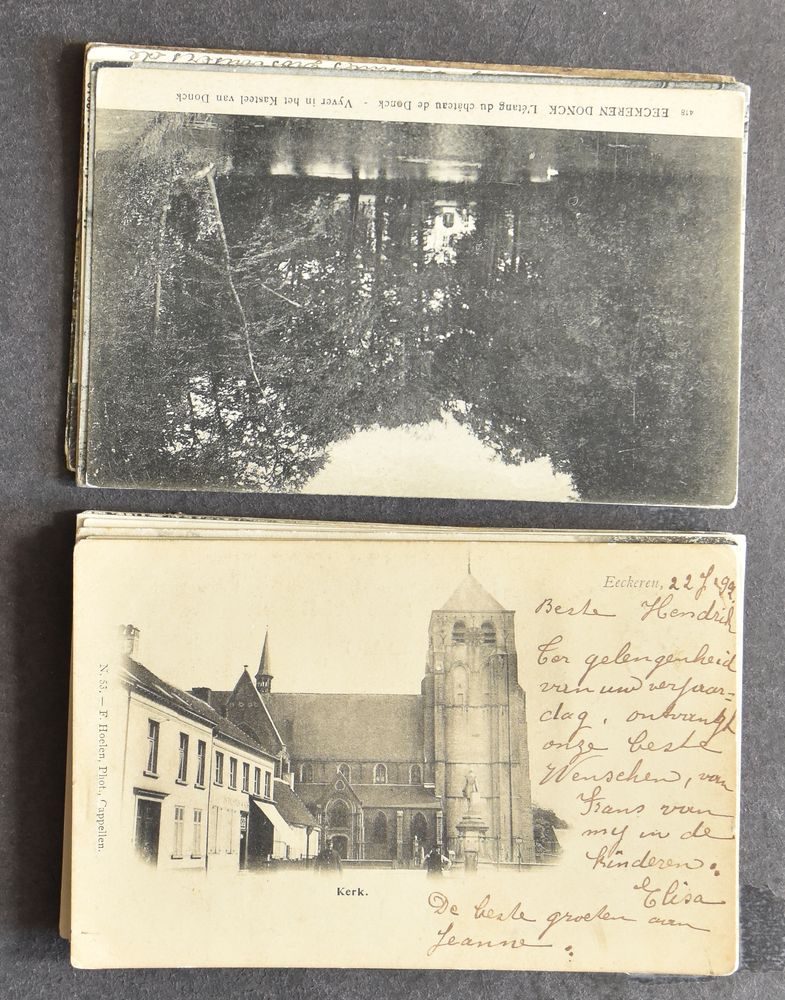 418 EECKEREN DONCK L'étang du château de Donck - Vyver in het Kasteel van Donck
Eeckeren, 22 J. 99
Beste Hendrik
Ter gelengenheid
van uw verjaar-
dag, ontvangt
onze beste
Wenschen, van
Frans van
my en de
kinderen.
Elisa
De beste groeten aan
Jeanne
N. 55. — F. Hoelen, Phot., Cappellen.
Kerk.